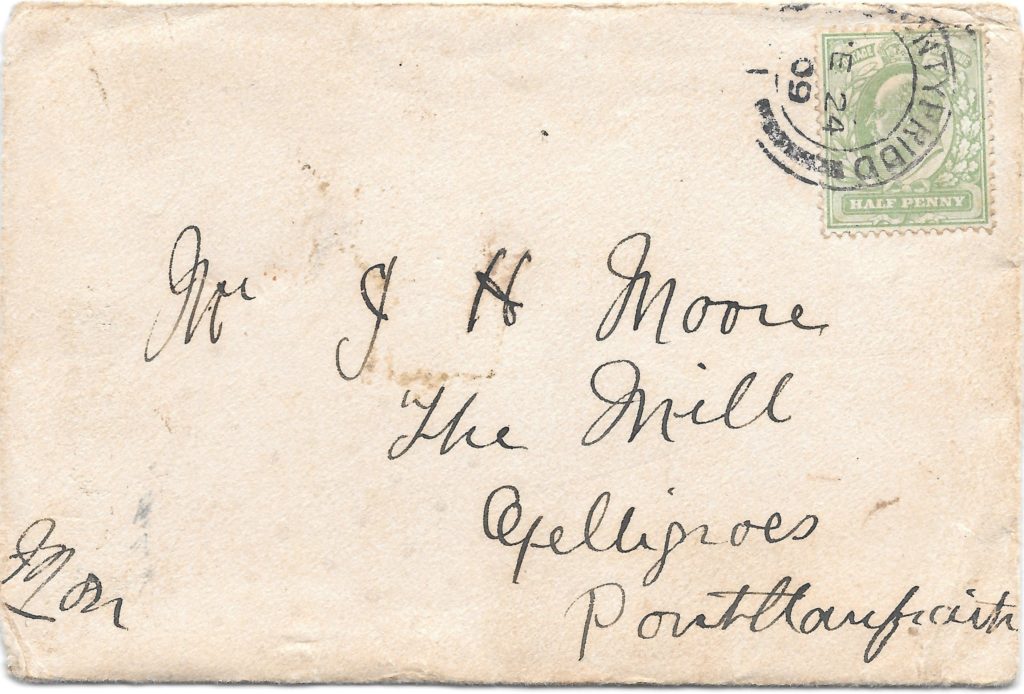 NTYPRIDD
E 24
09
HALF PENNY
Mr J H Moore
The Mill
Gelligroes
Pontllanfraith
Mon